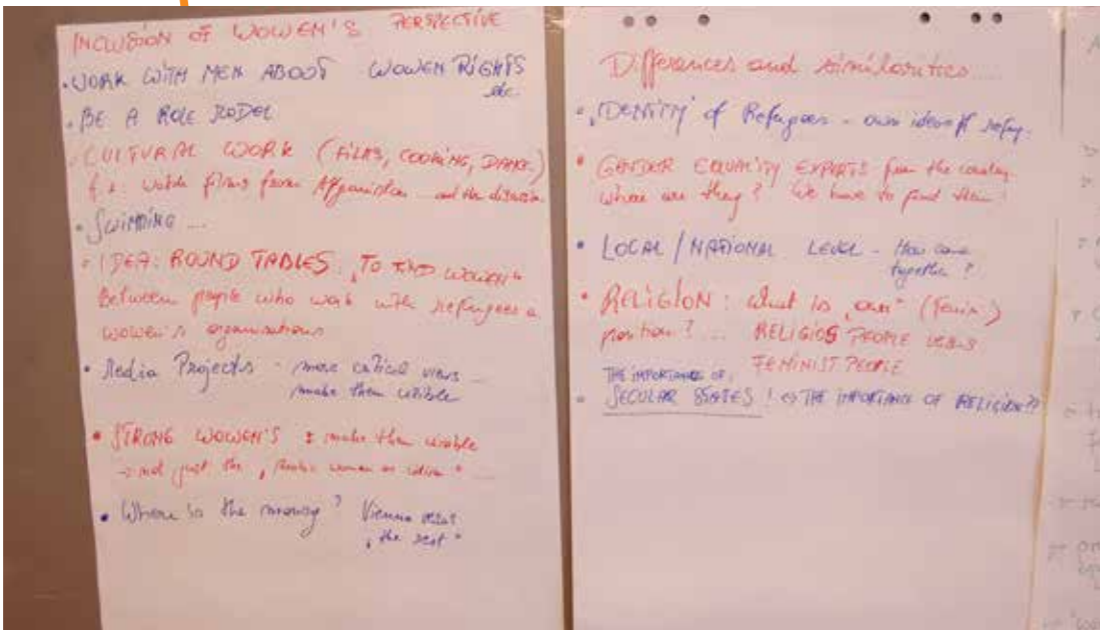 INCLUSION OF WOWEN'S PERSPECTIVE
• WORK WITH MEN ABOUT WOWEN RIGHTS
etc.
• BE A ROLE MODEL
• CULTURAL WORK (FILMS, COOKING, DANCE.)
f.e. watch films from Afganistan and then discussion
• SWIMMING ...
• IDEA: ROUND TABLES: „TO FIND WOWEN“
Between people who work with refugees a
wowen's organisations
• Media Projects - more critical views ...
make them visible
• STRONG WOWEN'S : make them visible
→ not just the „ women as “ ...
• Where is the money? Vienna versus
„the rest“
Differences and similarities ...
• IDENTITY of Refugees - own idea of refug.
• GENDER EQUALITY EXPERTS from the country.
Where are they? We have to find them!
• LOCAL / NATIONAL LEVEL - How come
together?
• RELIGION: What is „our“ (Fem.)
position? ... RELIGIOS PEOPLE VERSUS
FEMINIST PEOPLE
THE IMPORTANCE OF:
• SECULAR STATES! ⇔ THE IMPORTANCE OF RELIGION??